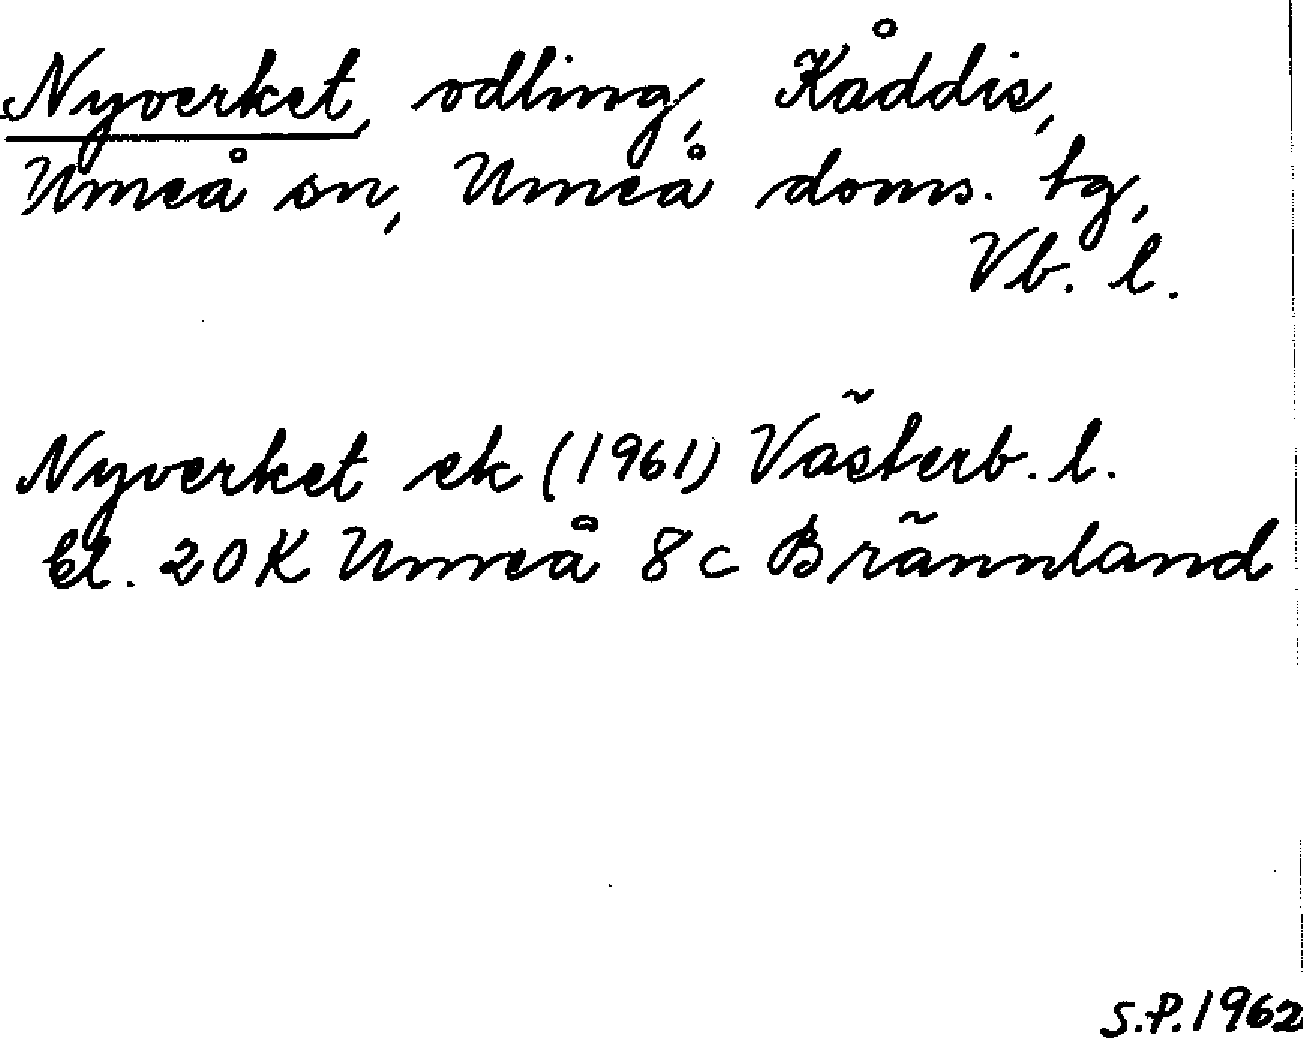 Nyverket, odling, Kåddis,
Umeå sn, Umeå doms. tg,
Vb. l.
Nyverket ek (1961) Västerb. l.
bl. 20K Umeå 8c Brännland
S.P. 1962